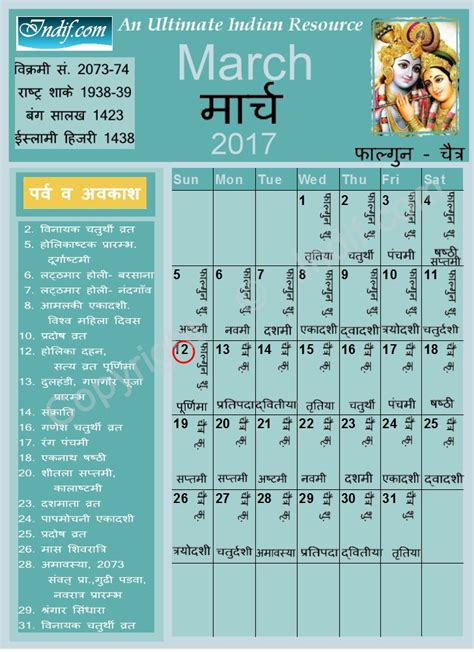 Indif.com
An Ultimate Indian Resource
विक्रमी सं. 2073-74
राष्ट्र शाके 1938-39
बंग सालख 1423
ईस्लामी हिजरी 1438
March
मार्च
2017
फाल्गुन - चैत्र
पर्व व अवकाश
2. विनायक चतुर्थी व्रत
5. होलिकाष्टक प्रारम्भ.
दूर्गाष्टमी
6. लट्ठामार होली- बरसाना
7. लट्ठमार होली- नंदगाँव
8. आमलकी एकादशी.
विश्व महिला दिवस
10. प्रदोष व्रत
12. होलिका दहन,
सत्य व्रत पूर्णिमा
13. दुलहंडी, गणगौर पूजा
प्रारम्भ
14. संक्रांति
16. गणेश चतुर्थी व्रत
17. रंग पंचमी
18. एकनाथ षष्ठी
20. शीतला सप्तमी,
कालाष्टमी
23. दशमाता व्रत
24. पापमोचनी एकादशी
25. प्रदोष व्रत
26. मास शिवरात्रि
28. अमावस्या, 2073
संवत् प्रा.,गुढी पडवा,
नवरात्र प्रारम्भ
29. श्रंगार सिंधारा
31. विनायक चतुर्थी व्रत
Sun Mon Tue Wed Thu Fri Sat
1 फाल्गुन शु. 2 फाल्गुन शु. 3 फाल्गुन शु. 4 फाल्गुन शु.
तृतिया चतुर्थी पंचमी षष्ठी सप्तमी
5 फाल्गुन शु. 6 फाल्गुन शु. 7 फाल्गुन शु. 8 फाल्गुन शु. 9 फाल्गुन शु. 10 फाल्गुन शु. 11 फाल्गुन शु.
अष्टमी नवमी दशमी एकादशी द्वादशी त्रयोदशी चतुर्दशी
12 फाल्गुन शु. 13 चैत्र कृ. 14 चैत्र कृ. 15 चैत्र कृ. 16 चैत्र कृ. 17 चैत्र कृ. 18 चैत्र कृ.
पूर्णिमा प्रतिपदा द्वितीया तृतिया चतुर्थी पंचमी षष्ठी
19 चैत्र कृ. 20 चैत्र कृ. 21 चैत्र कृ. 22 चैत्र कृ. 23 चैत्र कृ. 24 चैत्र कृ. 25 चैत्र कृ.
सप्तमी सप्तमी अष्टमी नवमी दशमी एकादशी द्वादशी
26 चैत्र कृ. 27 चैत्र कृ. 28 चैत्र कृ. 29 चैत्र शु. 30 चैत्र शु. 31 चैत्र शु.
त्रयोदशी चतुर्दशी अमावस्या प्रतिपदा द्वितीया तृतिया